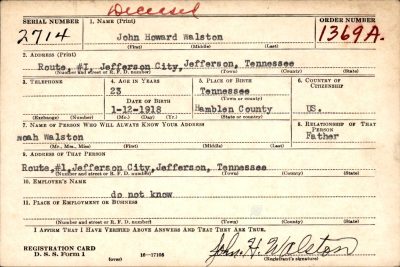 Deceased
SERIAL NUMBER 1. NAME (Print) ORDER NUMBER
2714 John Howard Walston 1369A.
(First) (Middle) (Last)
2. ADDRESS (Print)
Route, #1, Jefferson City, Jefferson, Tennessee
(Number and street or R. F. D. number) (Town) (County) (State)
3. TELEPHONE 4. AGE IN YEARS 5. PLACE OF BIRTH 6. COUNTRY OF CITIZENSHIP
23 Tennessee
DATE OF BIRTH (Town or county)
1-12-1918 Hamblen County US.
(Exchange) (Number) (Mo.) (Day) (Yr.) (State or country)
7. NAME OF PERSON WHO WILL ALWAYS KNOW YOUR ADDRESS 8. RELATIONSHIP OF THAT PERSON
noah Walston Father
(Mr., Mrs., Miss) (First) (Middle) (Last)
9. ADDRESS OF THAT PERSON
Route,#1,Jefferson City, Jefferson, Tennessee
(Number and street or R. F. D. number) (Town) (County) (State)
10. EMPLOYER'S NAME
do not know
11. PLACE OF EMPLOYMENT OR BUSINESS
(Number and street or R. F. D. number) (Town) (County) (State)
I AFFIRM THAT I HAVE VERIFIED ABOVE ANSWERS AND THAT THEY ARE TRUE.
REGISTRATION CARD John. H. Walston
D. S. S. Form 1 (over) 16—17105 (Registrant's signature)